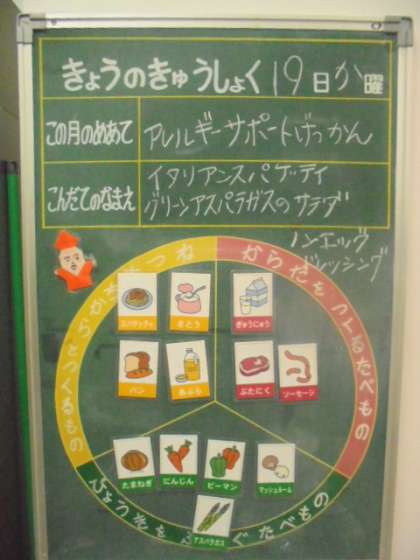 きょうのきゅうしょく 19日か曜
この月のめあて アレルギーサポートげっかん
こんだてのなまえ イタリアンスパゲッティ
グリーンアスパラガスのサラダ
ノンエッグ
ドレッシング
からだをつくるたべもの
スパゲッティ
さとう
ぎゅうにゅう
パン
あぶら
ぶたにく
ソーセージ
たまねぎ
にんじん
ピーマン
マッシュルーム
アスパラガス